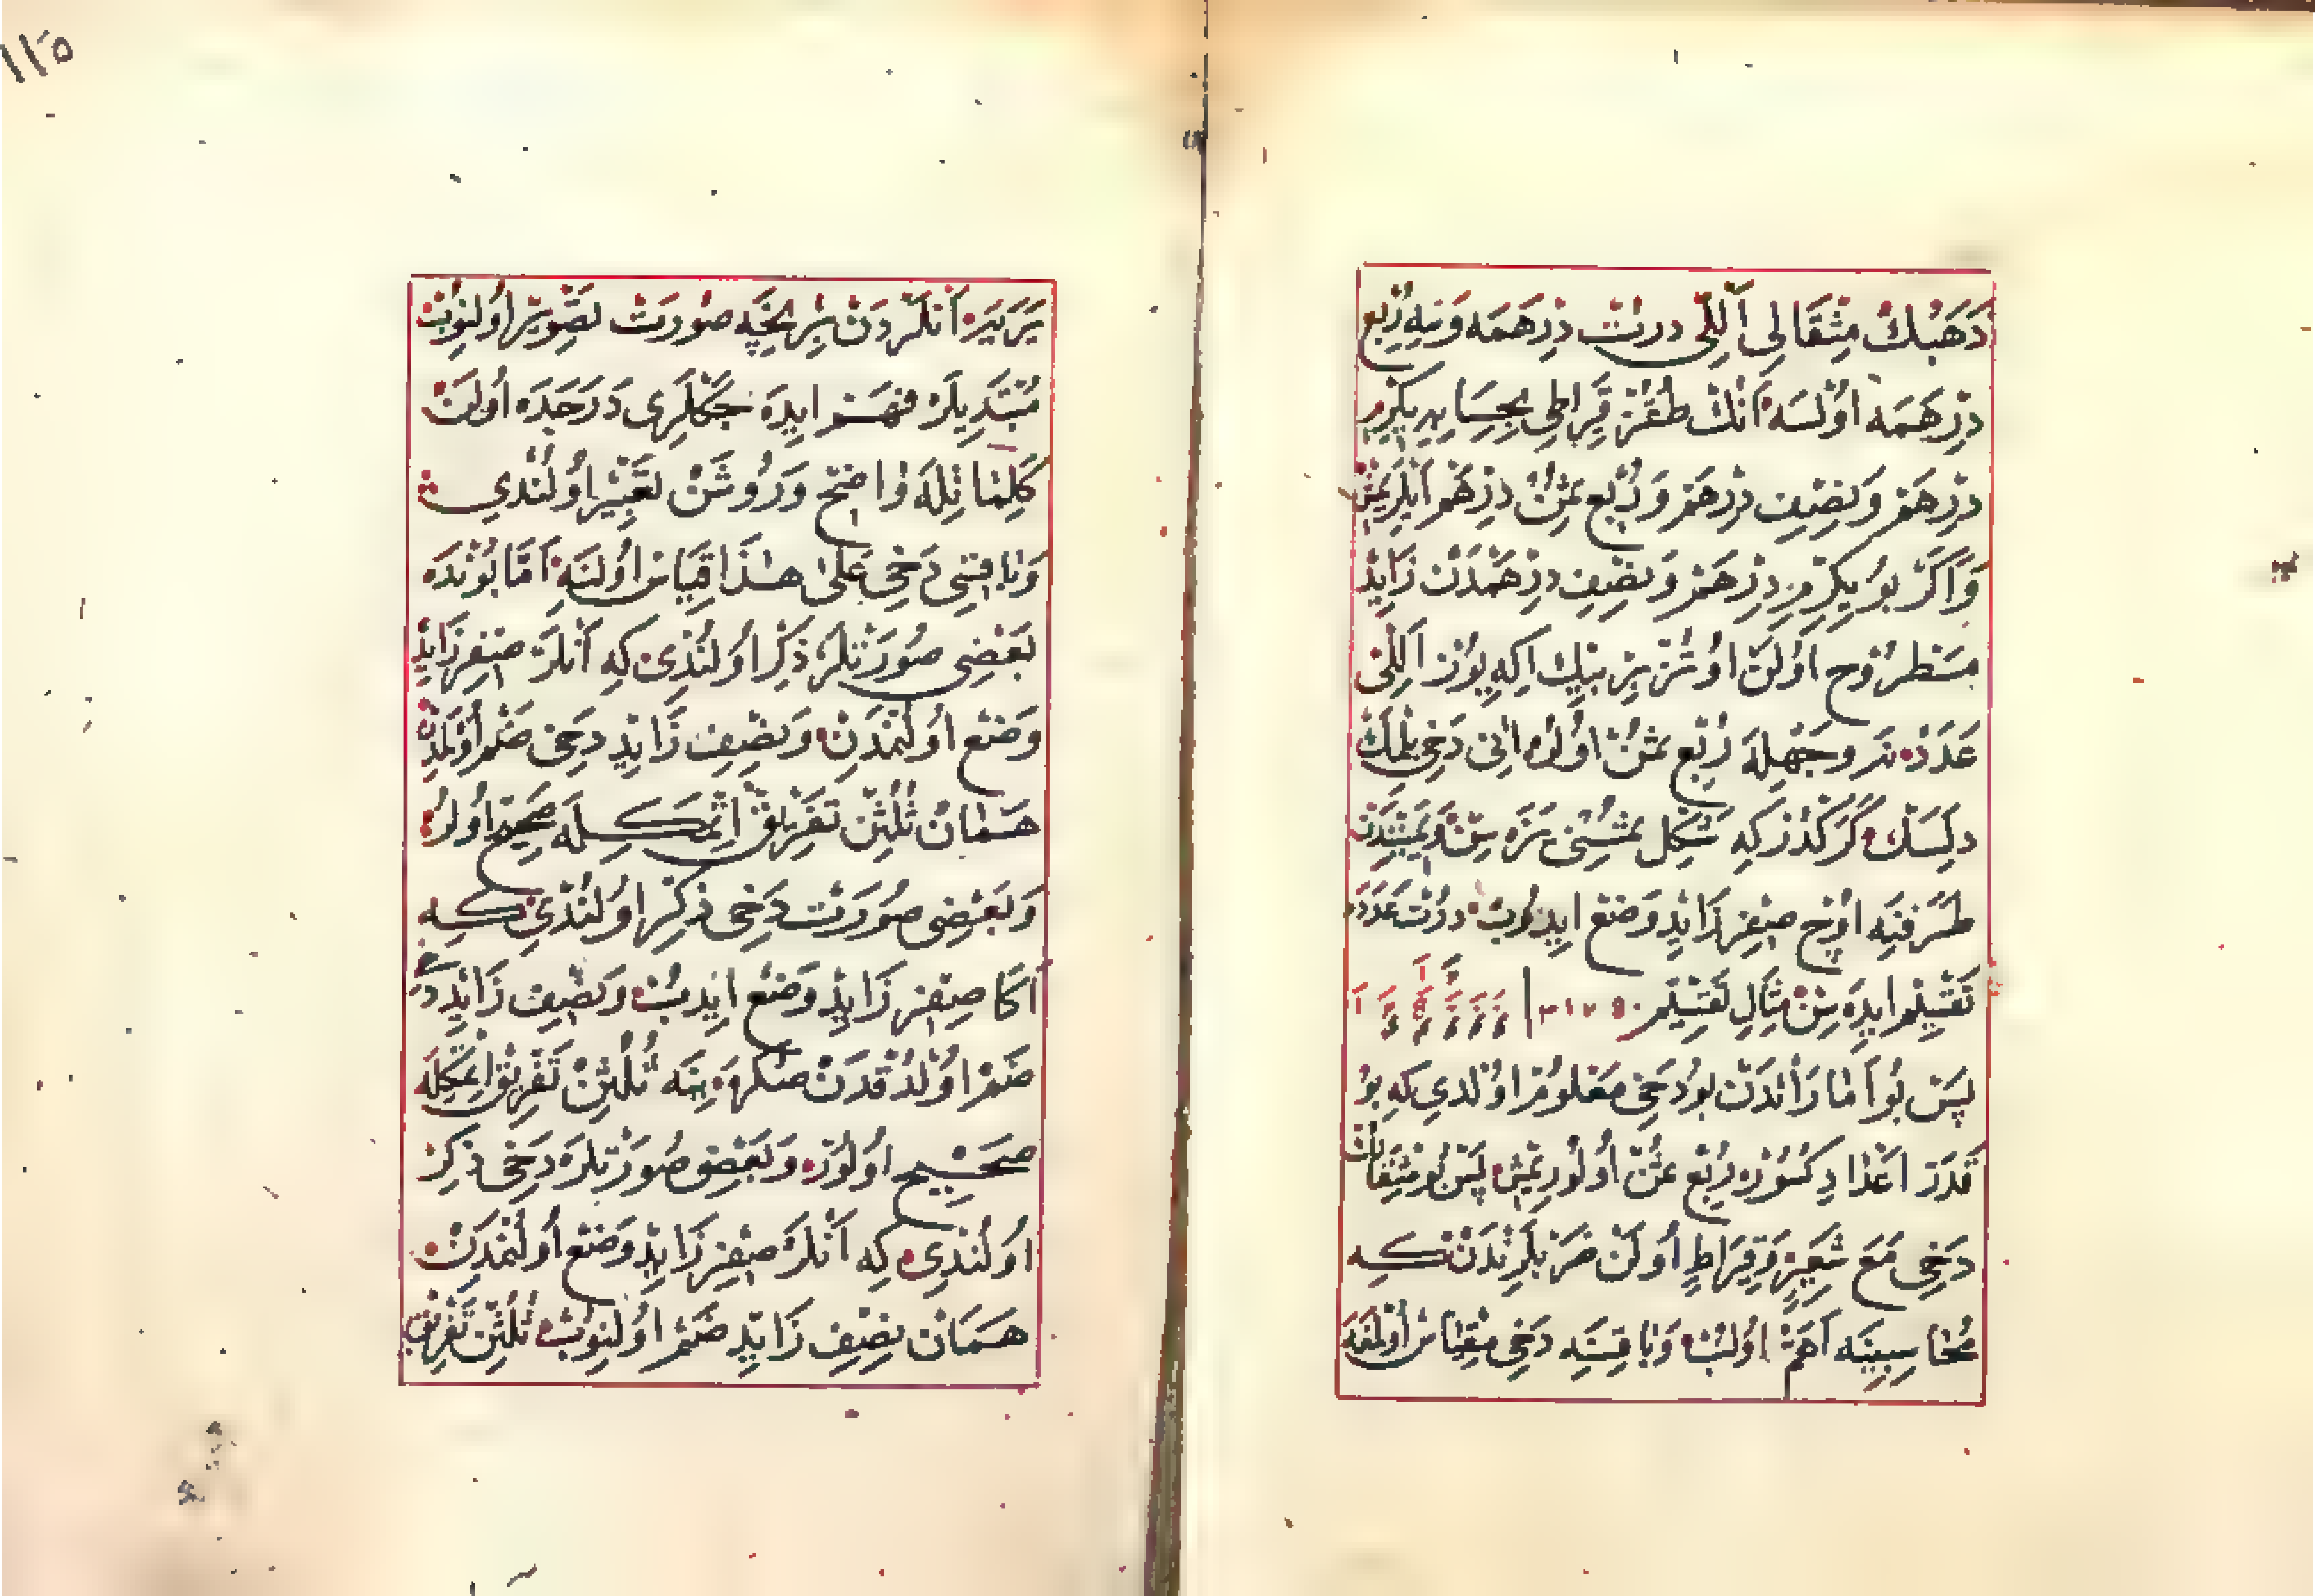 ذَهَبُكْ مِثْقَالِی اَللِی درت دِرْهَمَه وَنِیه رُبْع
دِرْهَمَه اوُلسَه اَنْكْ طقُزْ قِیرَاطِی بِحِسَابِ یِکِرمِ
دِرْهَمْ وَنِصْفِ دِرْهَمْ وَرُبْعِ ثمْنْ دِرْهَمْ
وَاَکَرْ بوُ یِکِرمِ دِرْهَمْ وَنِصْفِ دِرْهَمْدَنْ زَایِدْ
مَطْرُوح اوُلَنْ اوُتُزْ بِرْ بِیكْ اِکِه یوُزْ اَللِی
عَدَدْ نَه وَجْهِلَه رُبْعِ ثمْنْ اوُلُورْ انِی دَخِی بِلْمَكْ
دِلَرسَكْ کَرَکدُرْ کِه شَکِل
طَرَفِنَه اوُچ صِفِرْ زَایِدْ وَضْع ایدُوبْ دُرْتْ عَدَدَه
تَقْسِیمْ ایدَه سِنْ مِثَالِ تَقْسِیمْ ٣١٢٥٠
پَسْ بوُ بوُدَخِی مَعْلوُمْ اوُلدِی کِه بوُ
قَدَرْ اعْدَادِ کسُورْ رُبْعِ ثمْنْ اوُلُورِیمِش پَسْ بوُ مِثْقَالْ
دَخِی مَعَ شَعِیرْ وَقِیرَاطْ اوُلَنْ ضَرْبلَرنْدَنْ کِه
مُحَاسِبِینَه اَهَمْ اوُلُبْ وَبَاقِیسَه دَخِی مِقیَاس اوُلمغَه
١١٥
بِرَرْ بِرَرْ اَنلَرْدَنْ بِرْ نِیچَه صُورَتْ تَصْوِیرْ اوُلنُوبْ
مُبْتَدِیلَرْ فَهْمْ ایدَه جَکلَرِی دَرَجَدَه اوُلَنْ
کَلِمَاتِلَه وَاضِح وَرُوشَنْ تَعْبِیرْ اوُلُنْدِی
وَبَاقِیسِی دَخِی عَلَی هٰذَا قِیَاس اوُلنَه اَمَّا بوُندَه
بَعْضِی صُورَتْلَرْ ذِکْرْ اوُلُنْدِی کِه اَنلَرَ صِفِرْ زَایِدْ
وَضْع اوُلنْمَدِنْ وَنِصْفِ زَایِدْ دَخِی ضَمْ اوُلمَدِنْ
هَمَانْ ثُلُثِنْ تَفْرِیقْ اِتْمَکِلَه صَحِیح اوُلُرْ
وَبَعْضِی صُورَتْ دَخِی ذِکِرْ اوُلُنْدِی کِه
اَکَا صِفِرْ زَایِدْ وَضْع ایدِبْ وَنِصْفِ زَایِدْ دَخِی
ضَمْ اوُلدُقدَنْ صُکرَه ینَه ثُلُثِنْ تَفْرِیقْ اِتْمَکِلَه
صَحِیح اوُلوُرْ وَبَعْضِ صُورَتْلَرْ دَخِی ذِکِرْ
اوُلُنْدِی کِه اَنْلَرَ صِفِرْ زَایِدْ وَضْع اوُلنْمَدَنْ
هَمَانْ نِصْفِ زَایِدْ ضَمْ اوُلنوُبْ ثُلُثِنْ تَفْرِیقْ